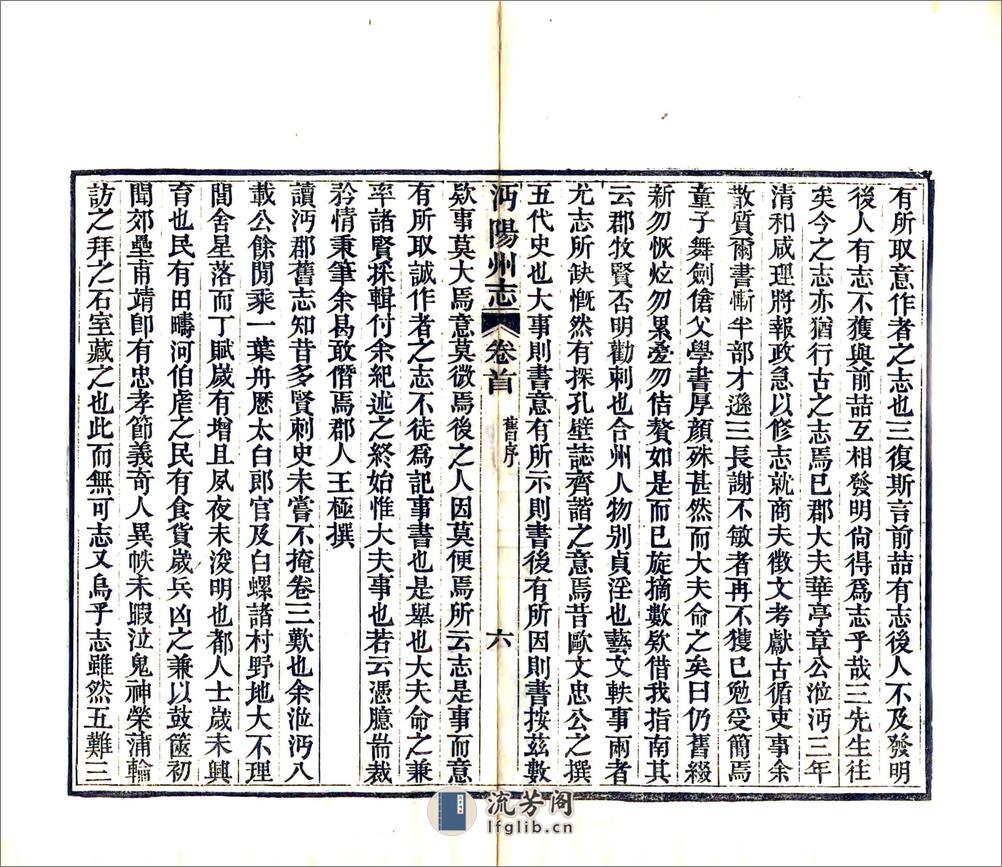 有所取意作者之志也三復斯言前喆有志後人不及發明
後人有志不獲與前喆互相發明尙得爲志乎哉三先生往
矣今之志亦猶行古之志焉巳郡大夫華亭章公涖沔三年
清和咸理將報政急以修志就商夫徵文考獻古循吏事余
散質爾書慚半部才遜三長謝不敏者再不獲巳勉受簡焉
童子舞劍傖父學書厚顏殊甚然而大夫命之矣曰仍舊綴
新勿恢炫勿累憂勿佶聱如是而巳旋摘數欵借我指南其
云郡牧賢否明勸刺也合州人物別貞淫也藝文軼事兩者
尤志所缺慨然有探孔壁誌齊諧之意焉昔歐文忠公之撰
五代史也大事則書意有所示則書後有所因則書按茲數
沔陽州志 卷首 舊序 六
欵事莫大焉意莫微焉後之人因莫便焉所云志是事而意
有所取誠作者之志不徒爲記事書也是舉也大夫命之兼
率諸賢採輯付余紀述之終始惟大夫事也若云憑臆耑裁
矜情秉筆余曷敢僭焉郡人王極撰
讀沔郡舊志知昔多賢刺史未嘗不掩卷三歎也余涖沔八
載公餘閒乘一葉舟歷太白郎官及白螺諸村野地大不理
閭舍星落而丁賦歲有增且夙夜未浚明也都人士歲未興
育也民有田疇河伯虐之民有食貨歲兵凶之兼以鼓篋初
聞郊壘甫靖卽有忠孝節義奇人異帙未暇泣鬼神榮蒲輪
訪之拜之石室藏之也此而無可志又烏乎志雖然五難三
流芳阁
lfglib.cn